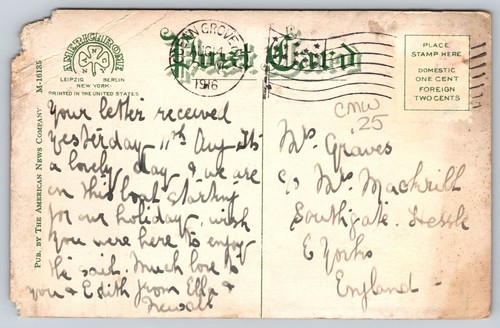 AMERICHROME
LEIPZIG BERLIN
NEW YORK
PRINTED IN THE UNITED STATES
PUB. BY THE AMERICAN NEWS COMPANY M-16135
Post Card
GROVE
AUG 14
1916
PLACE
STAMP HERE
DOMESTIC
ONE CENT
FOREIGN
TWO CENTS
CMW
25
Your letter received
yesterday 11th Aug Its
a lovely day & we are
on this boat starting
for our holiday, wish
you were here to enjoy
the said. Much love to
you & Edith from Ella &
Newall
Mrs Graves
c/o Mrs Mackrill
Southgate. Hessle
E Yorks
England